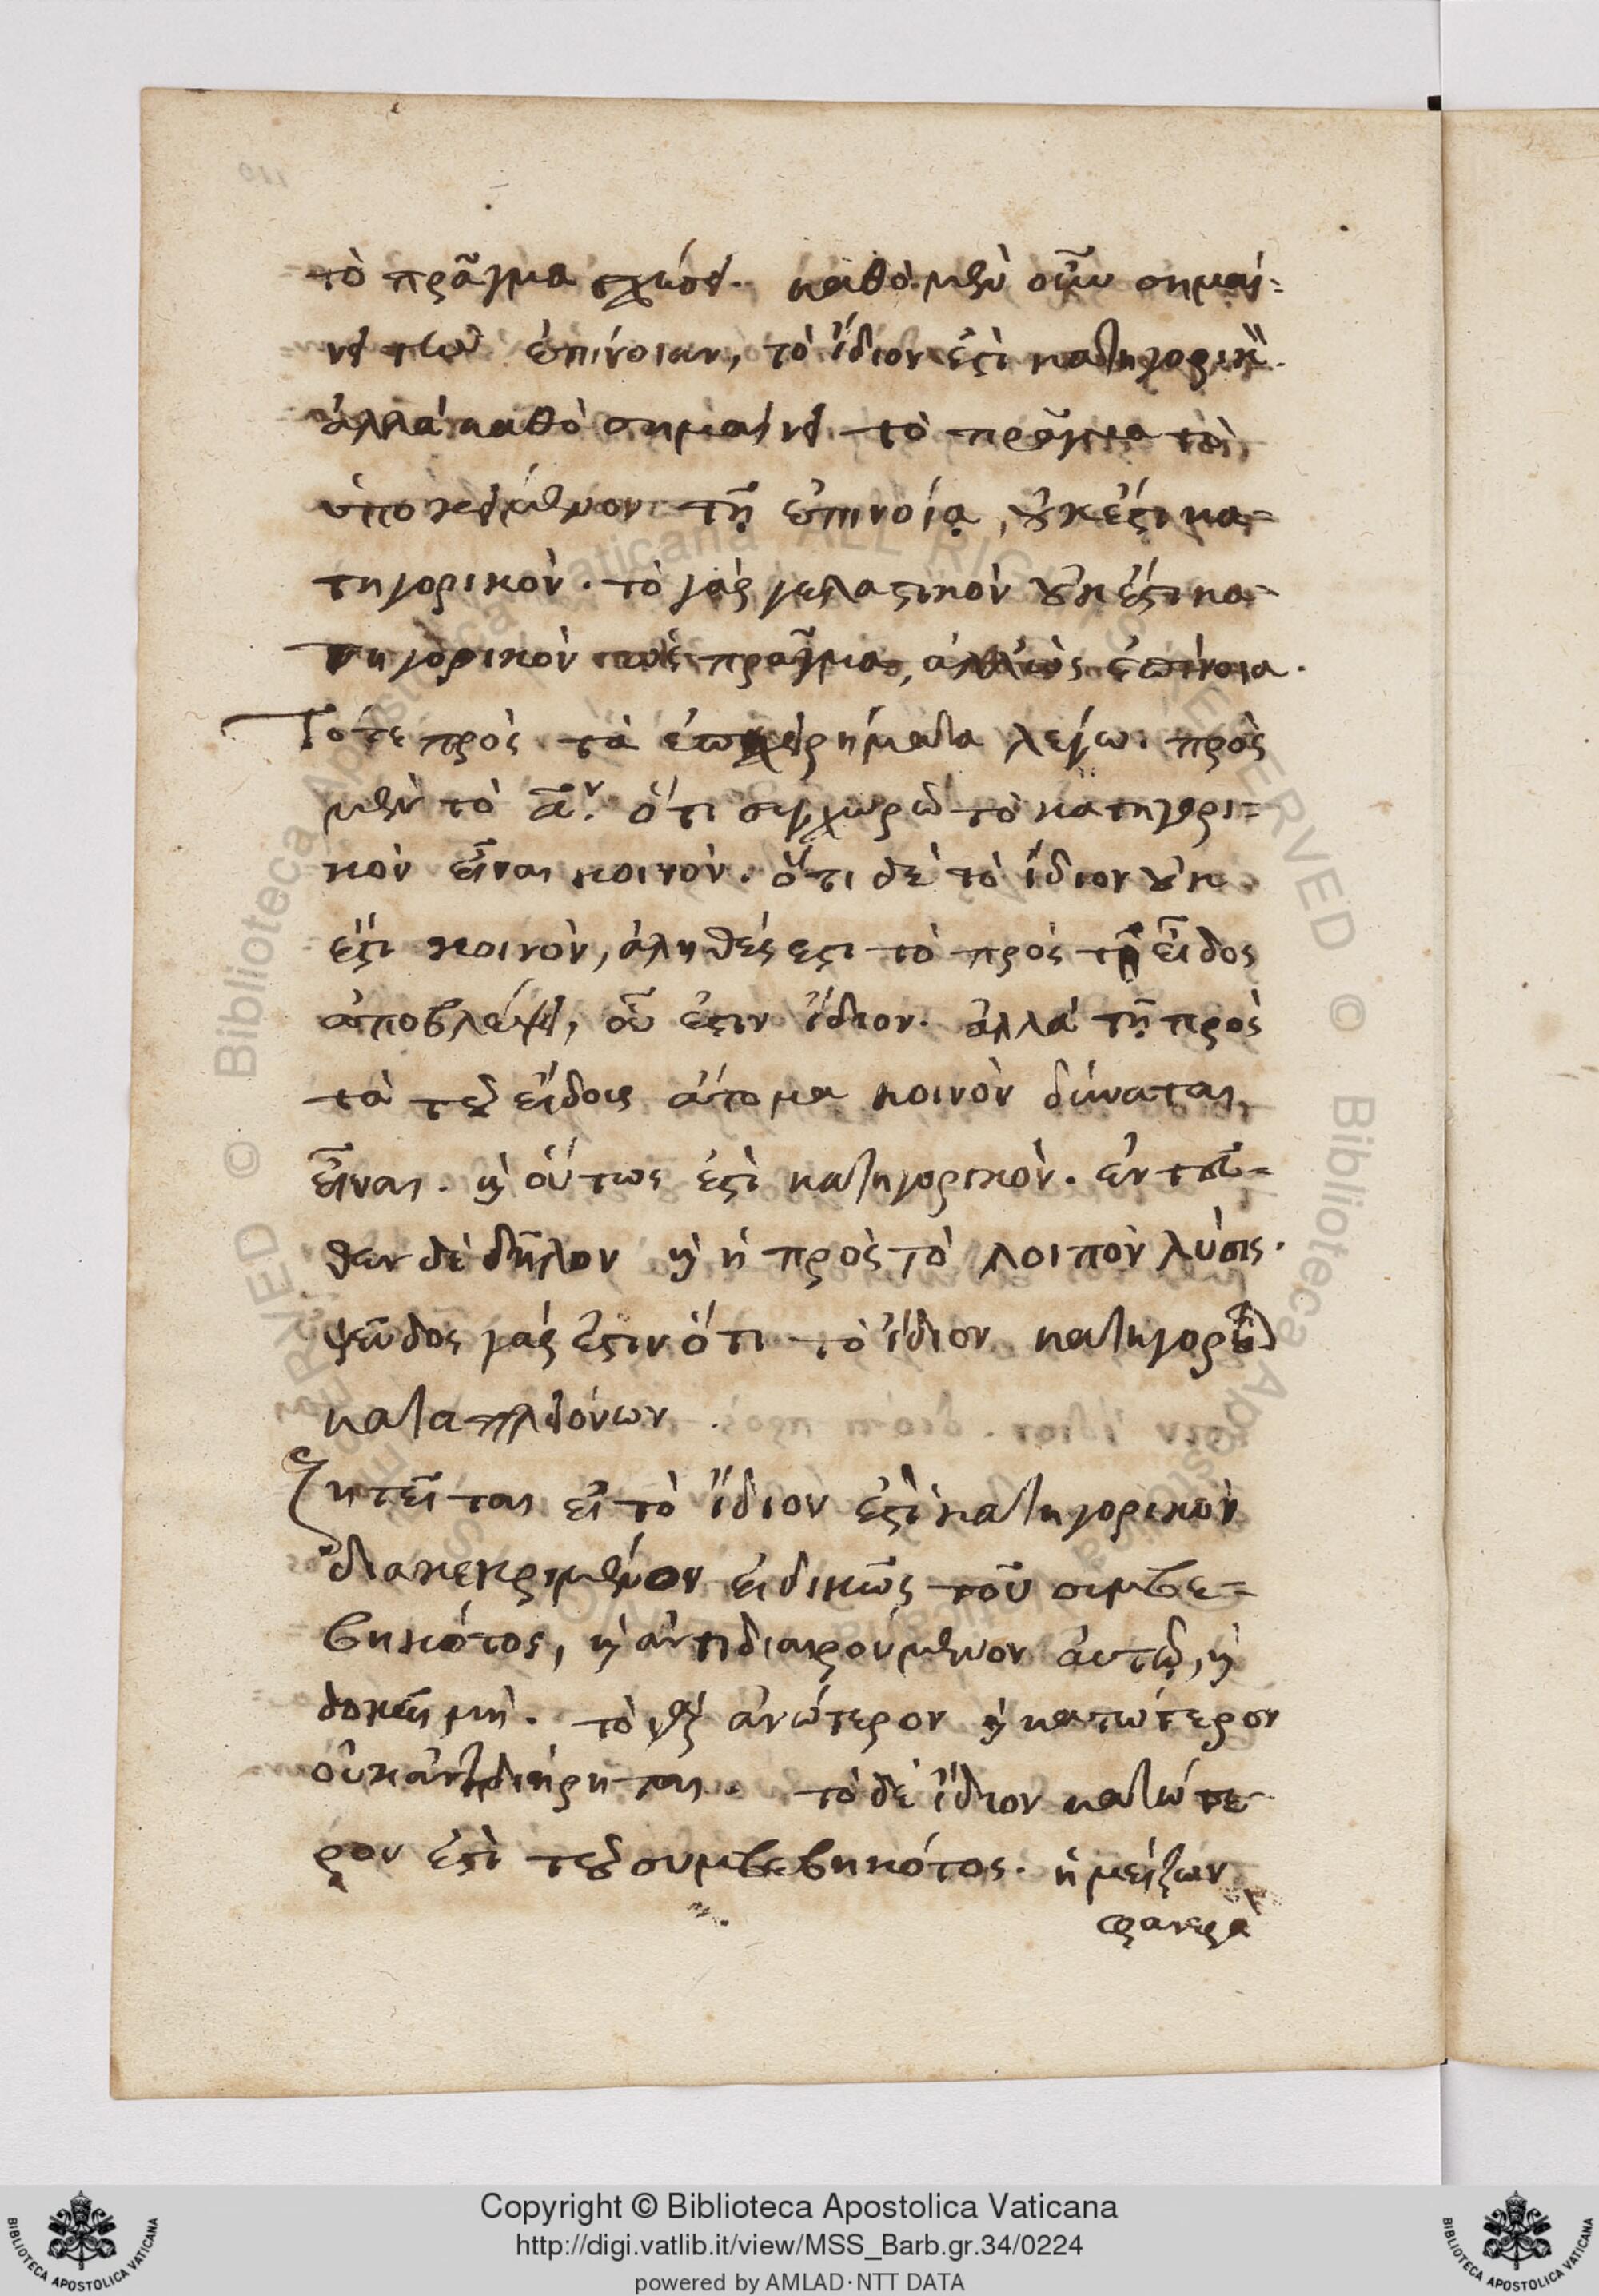 τὸ πρᾶγμα σχέσει. καθὸ μὲν οὖν σημαί-
νει τὴν ἐπίνοιαν, τὸ ἴδιον ἐστὶ κατηγορικὸν.
ἀλλὰ καθὸ σημαίνει τὸ πρᾶγμα τὸ
ὑποκείμενον τῇ ἐπινοίᾳ, οὐκ ἔστι κα-
τηγορικὸν. τὸ γὰρ γελαστικὸν οὐκ ἔστι κα-
τηγορικὸν ὡς πρᾶγμα, ἀλλ' ὡς ἐπίνοια.
Τότε πρὸς τὰ ἐπιχειρήματα λέγω. πρὸς
μὲν τὸ αον. ὅτι συγχωρῶ τὸ κατηγορι-
κὸν εἶναι κοινὸν. ὅτι δὲ τὸ ἴδιον οὐκ
ἔστι κοινὸν, ἀληθές ἐστι τὸ πρὸς τὸ εἶδος
ἀποβλέψει, οὗ ἐστιν ἴδιον. ἀλλὰ τῇ πρὸς
τὰ τοῦ εἴδους ἄτομα κοινὸν δύναται
εἶναι. καὶ οὕτως ἐστὶ κατηγορικὸν. ἐντεῦ-
θεν δὲ δῆλον καὶ ἡ πρὸς τὸ λοιπὸν λύσις.
ψεῦδος γάρ ἐστιν ὅτι τὸ ἴδιον κατηγορεῖται
κατὰ πλειόνων.
Ζητεῖται εἰ τὸ ἴδιον ἐστὶ κατηγορικὸν
διακεκριμένον εἰδικῶς τοῦ συμβε-
βηκότος, καὶ ἀντιδιαιρούμενον αὐτῷ, καὶ
δοκεῖ μὴ. τὸ γὰρ ἀνώτερον καὶ κατώτερον
οὐκ ἀντιδιῄρηται. τὸ δὲ ἴδιον κατώτε-
ρον ἐστὶ τοῦ συμβεβηκότος. ἡ μείζων
φανερὰ
Copyright © Biblioteca Apostolica Vaticana
http://digi.vatlib.it/view/MSS_Barb.gr.34/0224
powered by AMLAD·NTT DATA